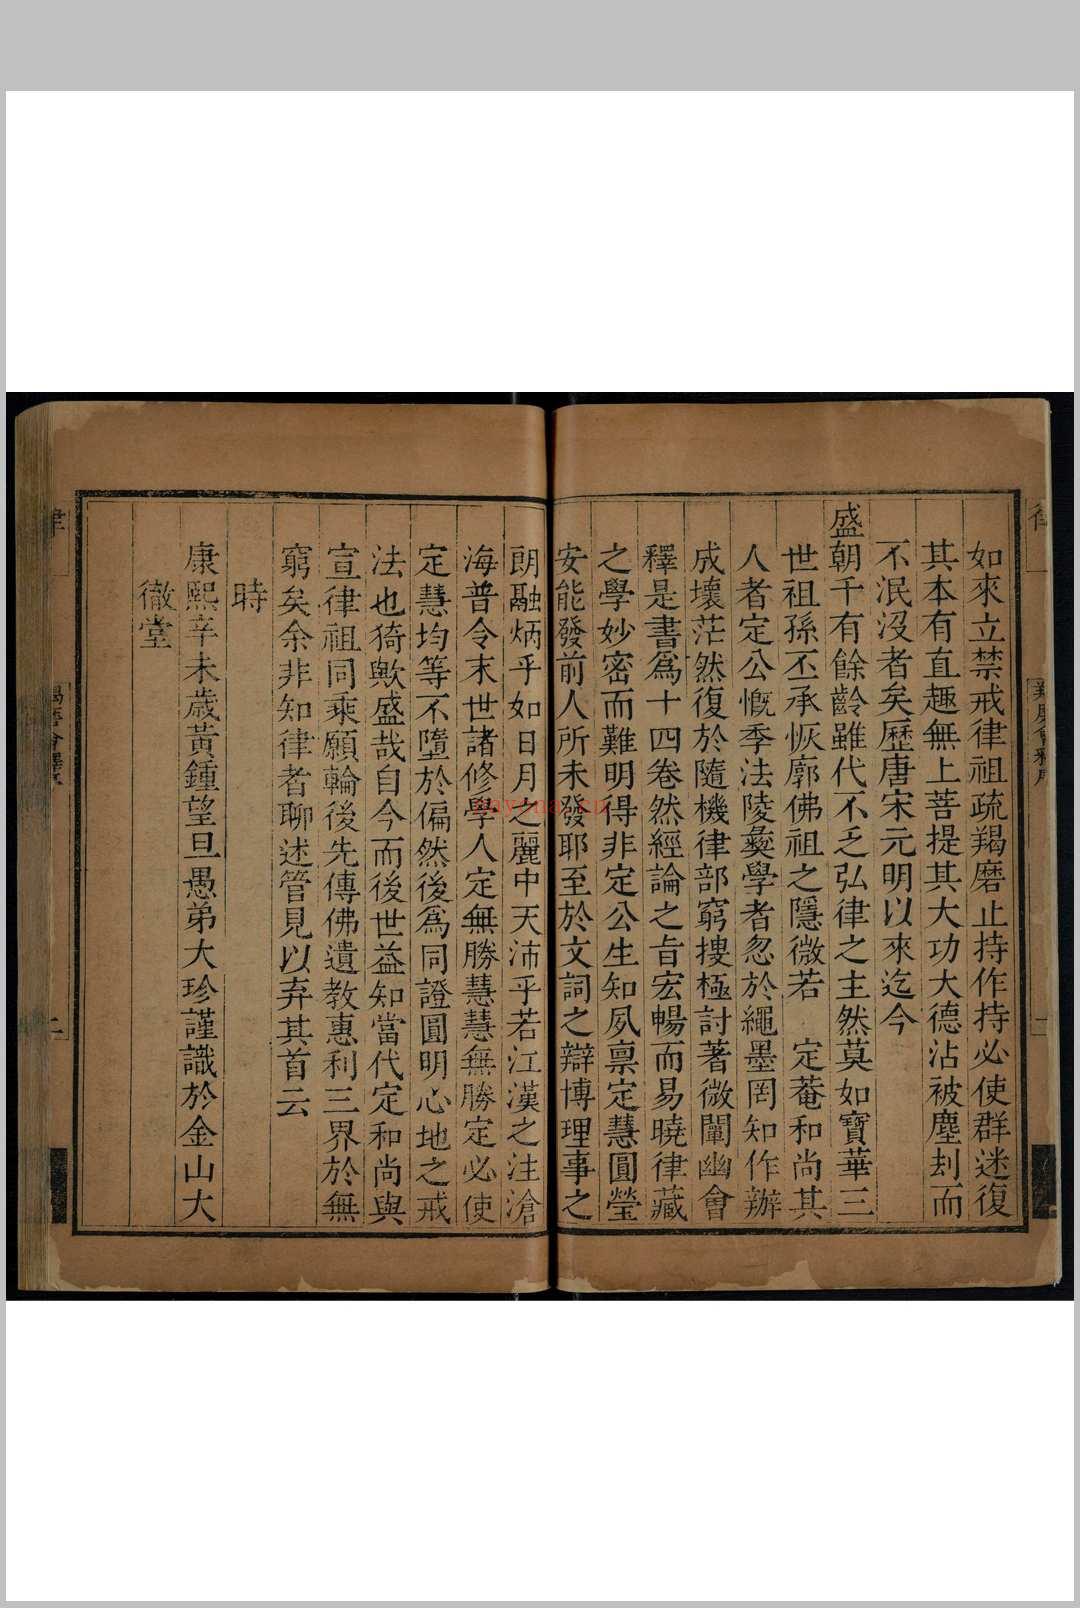 如來立禁戒律祖疏羯磨止持作持必使群迷復
其本有直趣無上菩提其大功大德沾被塵刦而
不泯沒者矣歷唐宋元明以來迄今
盛朝千有餘齡雖代不乏弘律之主然莫如寶華三
世祖孫丕承恢廓佛祖之隱微若　定菴和尚其
人者定公慨季法陵彝學者忽於繩墨罔知作辦
成壞茫然復於隨機律部窮摟極討著微闡幽會
釋是書爲十四卷然經論之㫖宏暢而易曉律藏
之學妙密而難明得非定公生知夙禀定慧圓瑩
安能發前人所未發耶至於文詞之辯博理事之
朗融炳乎如日月之麗中天沛乎若江漢之注滄
海普令末世諸修學人定無勝慧慧無勝定必使
定慧均等不墮於偏然後爲同證圓明心地之戒
法也猗歟盛哉自今而後世益知當代定和尚與
宣律祖同乘願輪後先傳佛遺教惠利三界於無
窮矣余非知律者聊述管見以弃其首云
時
康熙辛未歲黃鍾望旦愚弟大珍謹識於金山大
徹堂
律
羯磨會釋序
一
羯磨會釋序
二
nayona.cn